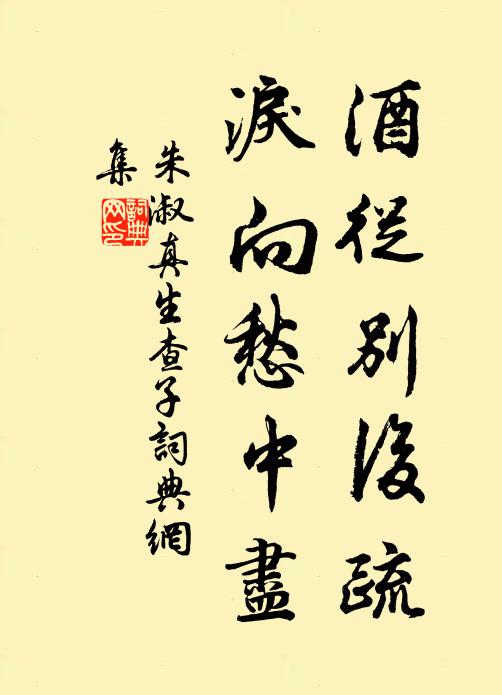 酒從別後疏
淚向愁中盡
朱淑真生查子詞典網
集
詞典網印